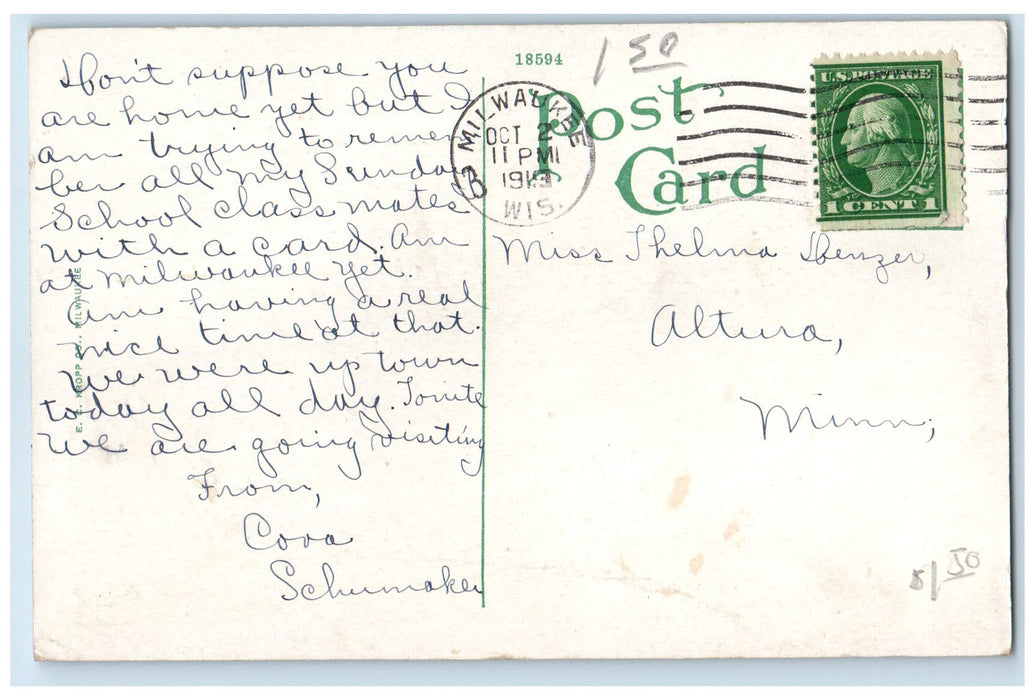 I Don't suppose you
are home yet but I
am trying to remem
ber all my Sunday
School class mates
with a card. Am
at Milwaukee yet.
Am having a real
nice time at that.
We were up town
today all day. Tonite
we are going visiting
From,
Cora
Schumaker
E. C. KROPP CO., MILWAUKEE
18594
1 50
Post
Card
MILWAUKEE
OCT 2
11 PM
1913
WIS.
U.S. POSTAGE
1 CENT 1
Miss Thelma
Altura,
Minn,
1 50